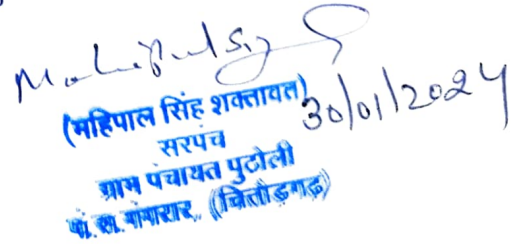 Mahipal Singh
30/01/2024
(महिपाल सिंह शक्तावत)
सरपंच
ग्राम पंचायत पुठोली
पं. स. गंगरार, (चित्तौड़गढ़)